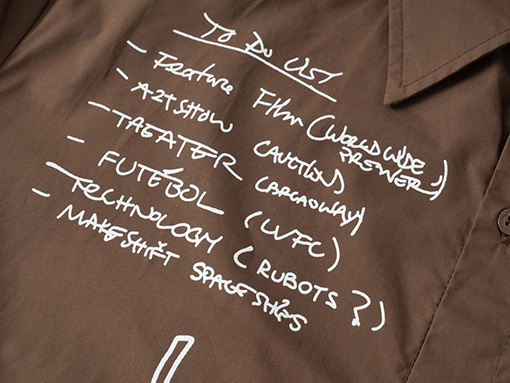 TO DO LIST
- Feature Film (WORLDWIDE PREMIER)
- ART SHOW (AUCTION)
- THEATER (BROADWAY)
- FUTEBOL (LVFC)
- TECHNOLOGY (RUBOTS?)
- MAKESHIFT SPACE SHIPS